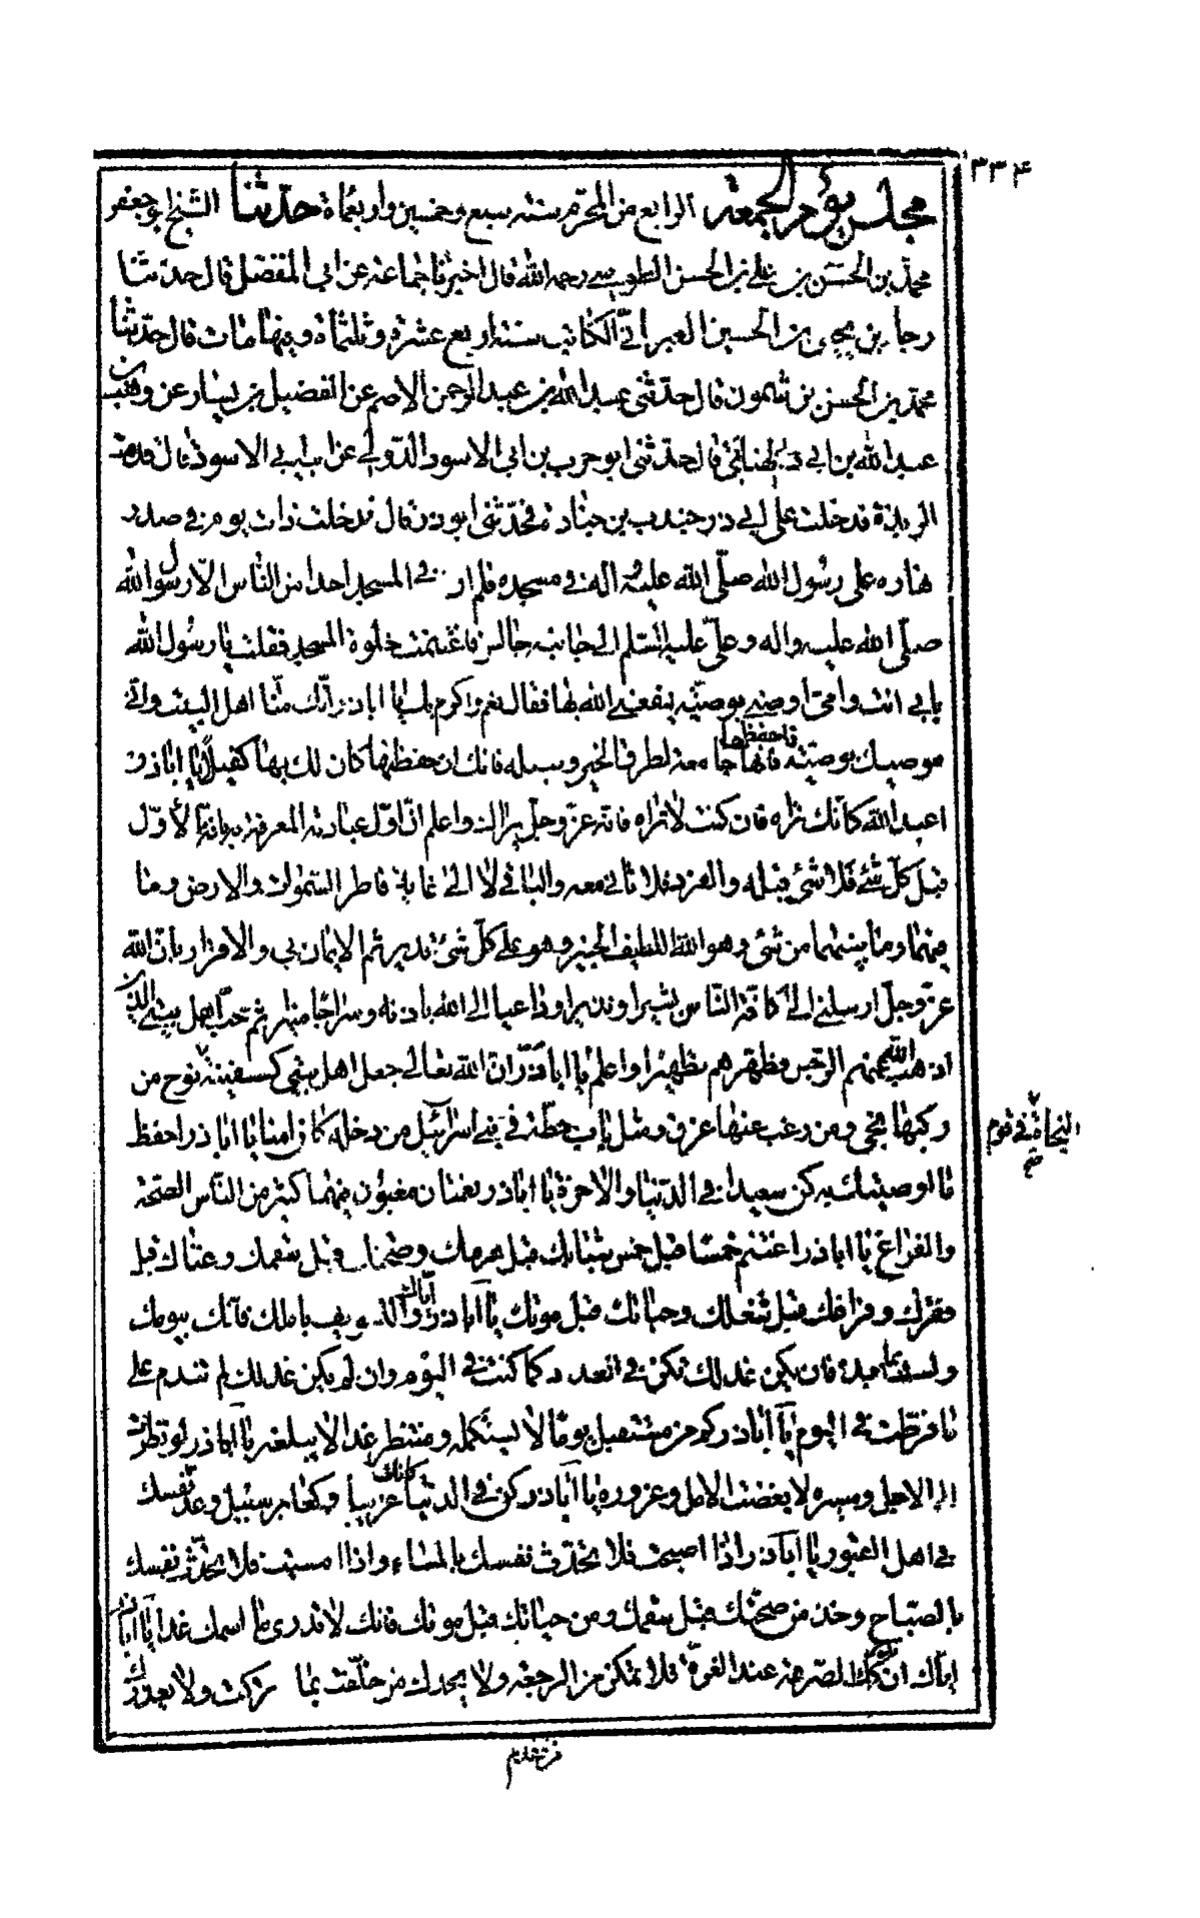 ٣٣۴
مجلس يوم الجمعة الرابع من المحرم سنة سبع وخمسين واربعمائة حدّثنا الشيخ ابو جعفر
محمّد بن الحسن بن علي بن الحسن الطوسي رحمه الله قال اخبرنا جماعة عن ابي المفضل قال حدثنا
رجا بن يحيى بن الحسين العبرائي الكاتب سنة اربع عشرة وثلثمائة وفيها مات قال حدّثنا
محمد بن الحسن بن شمون قال حدّثني عبد الله بن عبد الرحمن الاصم عن الفضيل بن يسار عن وهب بن
عبد الله بن ابي دبي الهنائي قال حدّثني ابو حرب بن ابي الاسود الدّولي عن ابيه ابي الاسود قال قدمت
الربذة فدخلت على ابي ذر جندب بن جنادة فحدّثني ابو ذر قال دخلت ذات يوم في صدر
نهاره على رسول الله صلّى الله عليه واله في مسجده فلم ار في المسجد احدا من النّاس الّا رسول الله
صلّى الله عليه واله وعليّ عليه السّلم الى جانبه جالس فاغتنمت خلوة المسجد فقلت يا رسول الله
بابي انت وامّي اوصني بوصيّة ينفعني الله بها فقال نعم واكرم بك يا ابا ذر انّك منّا اهل البيت وانّي
موصيك بوصيّة فاحفظها فانها جامعة لطرق الخير وسبله فانك ان حفظتها كان لك بها كفيلا يا ابا ذر
اعبد الله كأنك تراه فان كنت لا تراه فانه عزّ وجلّ يراك واعلم انّ اوّل عبادته المعرفة به فانه الأوّل
قبل كلّ شيء فلا شيء قبله والفرد فلا ثاني معه والباقي لا الى غاية فاطر السّموات والارض وما
فيهما وما بينهما من شيء وهو الله اللطيف الخبير وهو على كلّ شيء قدير ثم الايمان بي والاقرار بانّ الله
عزّ وجلّ ارسلني الى كافّة النّاس بشيرا ونذيرا وداعيا الى الله باذنه وسراجا منيرا ثم حبّ اهل بيتي الذين
اذهب الله عنهم الرّجس وطهّرهم تطهيرا واعلم يا ابا ذرّ انّ الله تعالى جعل اهل بيتي كسفينة نوح من
ركبها نجى ومن رغب عنها غرق ومثل باب حطّة في بني اسرائيل من دخله كان امنا يا ابا ذر احفظ
ما اوصيتك به تكن سعيدا في الدّنيا والاخرة يا ابا ذر نعمتان مغبون فيهما كثير من النّاس الصّحّة
والفراغ يا ابا ذر اغتنم خمسا قبل خمس شبابك قبل هرمك وصحّتك قبل سقمك وغناك قبل
فقرك وفراغك قبل شغلك وحياتك قبل موتك يا ابا ذر ايّاك والتسويف باملك فانّك بيومك
ولست بما بعده فان يكن غد لك تكن في الغد كما كنت في اليوم وان لم يكن غد لك لم تندم على
ما فرّطت في اليوم يا ابا ذر كم من مستقبل يوما لا يستكمله ومنتظر غدا لا يبلغه يا ابا ذر لو نظرت
الى الاجل ومسيره لابغضت الامل وغروره يا ابا ذر كن في الدنيا كانك غريب او كعابر سبيل وعدّ نفسك
في اهل القبور يا ابا ذر اذا اصبحت فلا تحدّث نفسك بالمساء واذا امسيت فلا تحدّث نفسك
بالصّباح وخذ من صحّتك قبل سقمك ومن حياتك قبل موتك فانك لا تدري ما اسمك غدا يا ابا ذر
ايّاك ان تدركك الصرعة عند الغرّة فلا تمكن من الرجعة ولا يحمدك من خلّفت بما تركت ولا يعذرك
النجاة في قوم
صح
من تقدم